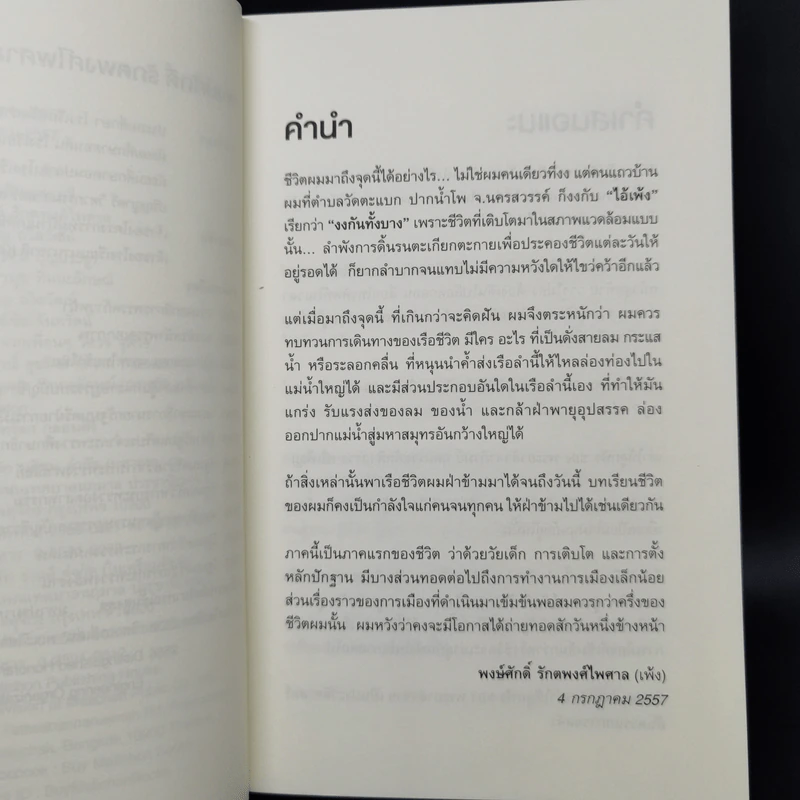 คำนำ
ชีวิตผมมาถึงจุดนี้ได้อย่างไร... ไม่ใช่ผมคนเดียวที่งง แต่คนแถวบ้าน
ผมที่ตำบลวัดตะแบก ปากน้ำโพ จ.นครสวรรค์ ก็งงกับ “ไอ้เพ้ง”
เรียกว่า “งงกันทั้งบาง” เพราะชีวิตที่เติบโตมาในสภาพแวดล้อมแบบ
นั้น... ลำพังการดิ้นรนตะเกียกตะกายเพื่อประคองชีวิตแต่ละวันให้
อยู่รอดได้ ก็ยากลำบากจนแทบไม่มีความหวังใดให้ไขว่คว้าอีกแล้ว
แต่เมื่อมาถึงจุดนี้ ที่เกินกว่าจะคิดฝัน ผมจึงตระหนักว่า ผมควร
ทบทวนการเดินทางของเรือชีวิต มีใคร อะไร ที่เป็นดั่งสายลม กระแส
น้ำ หรือระลอกคลื่น ที่หนุนนำค้ำส่งเรือลำนี้ให้ไหลล่องท่องไปใน
แม่น้ำใหญ่ได้ และมีส่วนประกอบอันใดในเรือลำนี้เอง ที่ทำให้มัน
แกร่ง รับแรงส่งของลม ของน้ำ และกล้าฝ่าพายุอุปสรรค ล่อง
ออกปากแม่น้ำสู่มหาสมุทรอันกว้างใหญ่ได้
ถ้าสิ่งเหล่านั้นพาเรือชีวิตผมฝ่าข้ามมาได้จนถึงวันนี้ บทเรียนชีวิต
ของผมก็คงเป็นกำลังใจแก่คนจนทุกคน ให้ฝ่าข้ามไปได้เช่นเดียวกัน
ภาคนี้เป็นภาคแรกของชีวิต ว่าด้วยวัยเด็ก การเติบโต และการตั้ง
หลักปักฐาน มีบางส่วนทอดต่อไปถึงการทำงานการเมืองเล็กน้อย
ส่วนเรื่องราวของการเมืองที่ดำเนินมาเข้มข้นพอสมควรกว่าครึ่งของ
ชีวิตผมนั้น ผมหวังว่าคงจะมีโอกาสได้ถ่ายทอดสักวันหนึ่งข้างหน้า
พงษ์ศักดิ์ รักตพงศ์ไพศาล (เพ้ง)
4 กรกฎาคม 2557